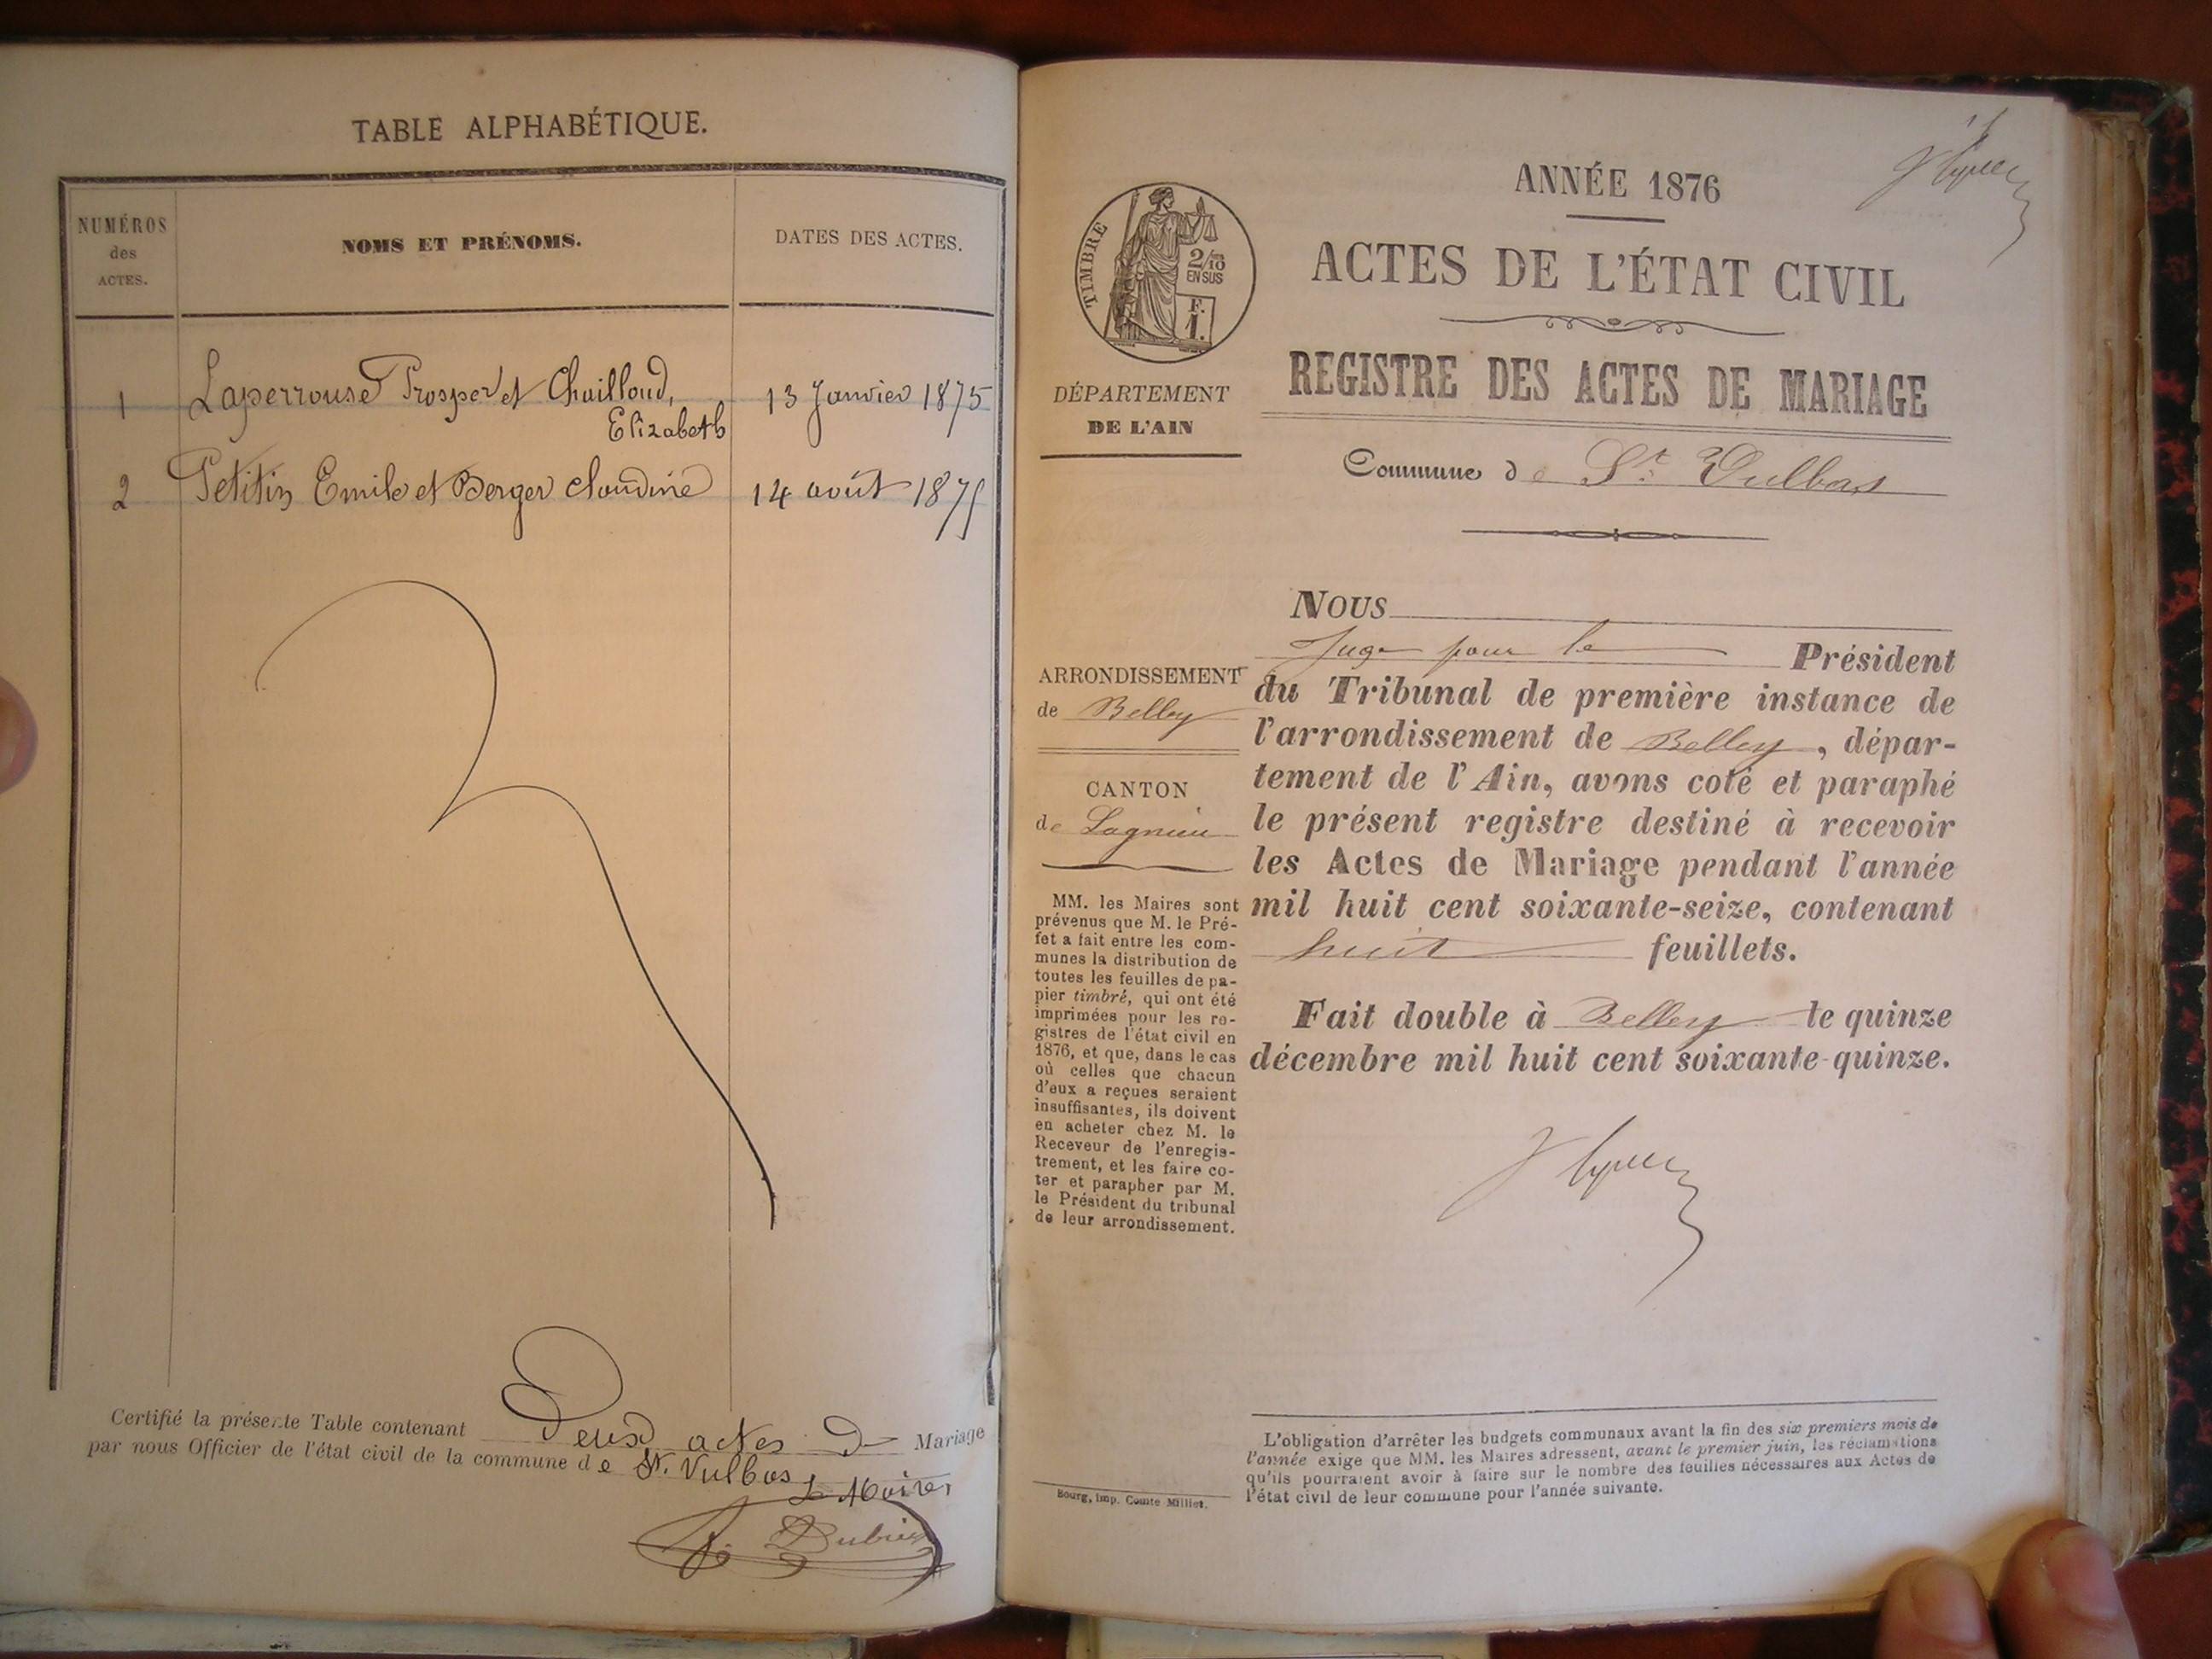 TABLE ALPHABÉTIQUE.
NUMÉROS
des
ACTES.
NOMS ET PRÉNOMS.
DATES DES ACTES.
1 Laperrouse Prosper et Chailloud, 13 Janvier 1875
Elizabeth
2 Petitin Emile et Berger claudine 14 août 1875
Certifié la présente Table contenant Deux actes de Mariage
par nous Officier de l'état civil de la commune de St. Vulbas
Le Maire,
Dubien
ANNÉE 1876
ACTES DE L'ÉTAT CIVIL
REGISTRE DES ACTES DE MARIAGE
Commune de St. Vulbas
TIMBRE
2/10
EN SUS
F.
1.
DÉPARTEMENT
DE L'AIN
ARRONDISSEMENT
de Belley
CANTON
de Lagnieu
MM. les Maires sont
prévenus que M. le Pré-
fet a fait entre les com-
munes la distribution de
toutes les feuilles de pa-
pier timbré, qui ont été
imprimées pour les re-
gistres de l'état civil en
1876, et que, dans le cas
où celles que chacun
d'eux a reçues seraient
insuffisantes, ils doivent
en acheter chez M. le
Receveur de l'enregis-
trement, et les faire co-
ter et parapher par M.
le Président du tribunal
de leur arrondissement.
Bourg, imp. Comte Milliet.
NOUS
Juge pour le Président
du Tribunal de première instance de
l'arrondissement de Belley, dépar-
tement de l'Ain, avons coté et paraphé
le présent registre destiné à recevoir
les Actes de Mariage pendant l'année
mil huit cent soixante-seize, contenant
huit feuillets.
Fait double à Belley le quinze
décembre mil huit cent soixante-quinze.
L'obligation d'arrêter les budgets communaux avant la fin des six premiers mois de
l'année exige que MM. les Maires adressent, avant le premier juin, les réclamations
qu'ils pourraient avoir à faire sur le nombre des feuilles nécessaires aux Actes de
l'état civil de leur commune pour l'année suivante.